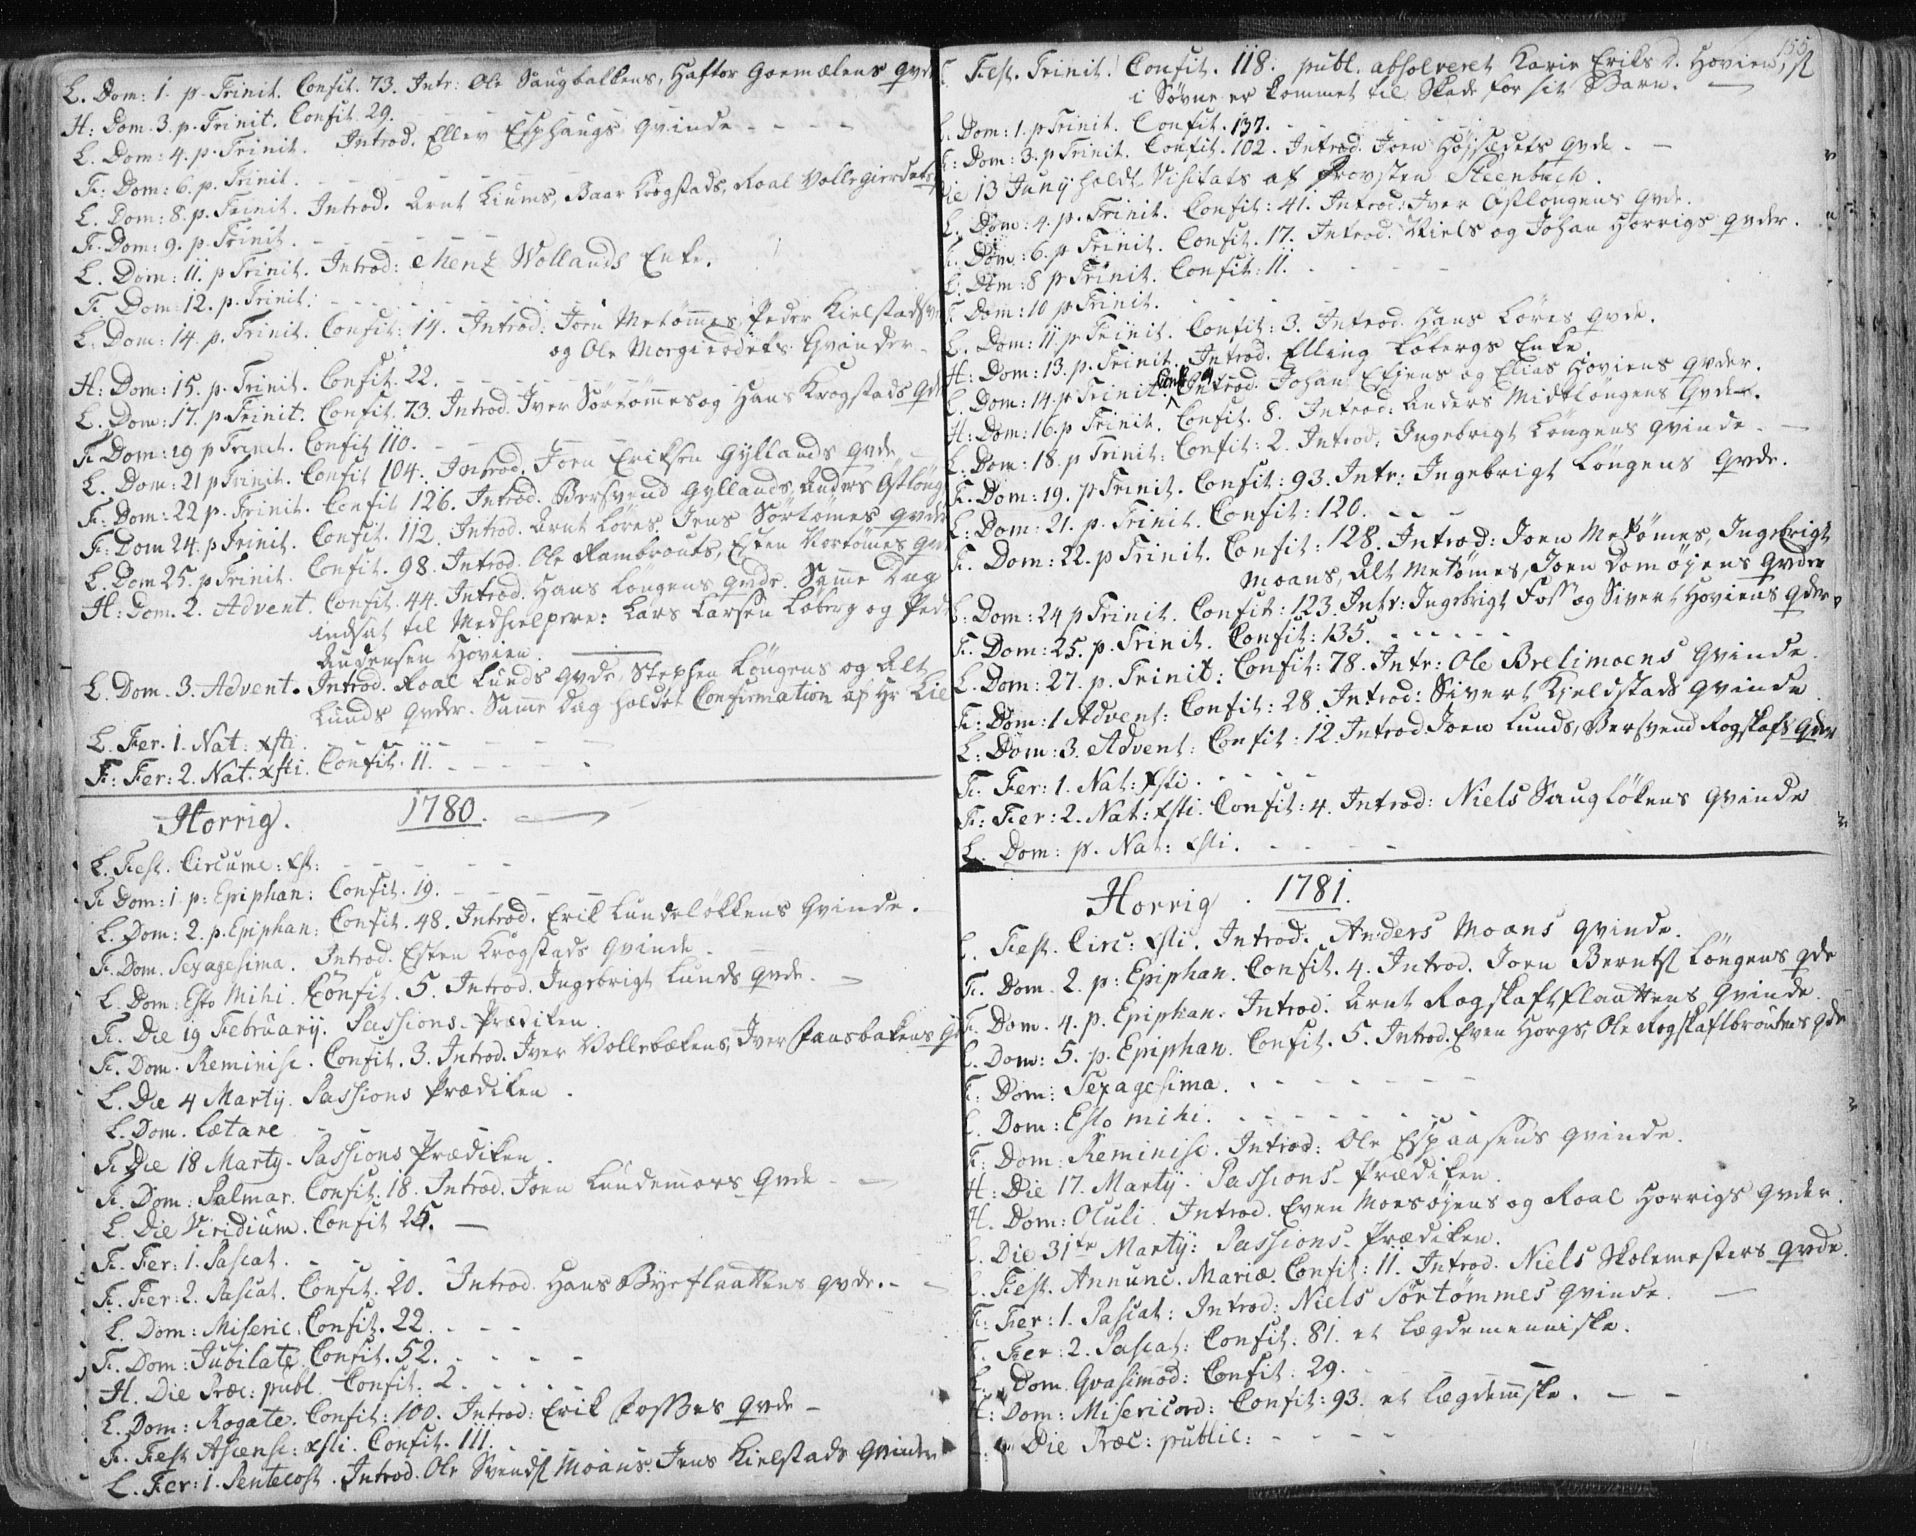 L. Dom: 1. p. Trinit. Confit. 73. Intr: Ole Saugbakkens, Haftor Goemælens Qvd
H: Dom. 3. p. Trinit. Confit. 29.
L. Dom: 4. p. Trinit. Introd. Ellev Esphaugs Qvinde - - - -
F: Dom: 6. p. Trinit. - - - -
L. Dom: 8. p. Trinit. Introd. Arnt Liums, Baar Krogstads, Roal Vollegierdets
F. Dom: 9. p. Trinit. - - - -
L. Dom: 11. p Trinit. Introd: Mentz Wollands Enke.
F. Dom: 12. p. Trinit: - - - -
L. Dom: 14. p. Trinit. Confit: 14. Introd: Joen Metømmes, Peder Kielstads
og Ole Morgierdets Qvinder -
H: Dom: 15. p. Trinit. Confit. 22. - - - -
L. Dom: 17. p. Trinit. Confit. 73. Introd. Iver Sørtømmes og Hans Krogstads Qvd
F. Dom: 19 p Trinit. Confit 110. - - -
L. Dom: 21 p Trinit. Confit 104. Introd. Joen Eriksen Gyllands Qvde
F: Dom: 22 p. Trinit. Confit 126. Introd. Bersvend Gyllands, Anders Østløng
F: Dom 24. p Trinit. Confit. 112. Introd. Arnt Løres, Jens Sørtømes Qvder
L. Dom 25. p Trinit. Confit. 98. Introd. Ole Rambrouts, Esten Nortømes Qv
H: Dom. 2. Advent. Confit. 44. Introd. Hans Løngens Qvde. Samme Dag
indsat til Medhielpere: Lars Larsen Loberg og Ped
Andersen Hovien.
L. Dom. 3. Advent. Introd. Roal Lunds Qvde, Stephen Løngens og Alt
Lunds Qvder. Samme Dag holdet Confirmation af Hr Lie
L. Fer. 1. Nat: Xsti. - - - -
F: Fer: 2. Nat. Xsti. Confit. 11. - - - -
Horrig. 1780.
L. Fest. Circumc: Xst: - - - -
F Dom: 1 p: Epiphan: Confit. 19. - - - -
L. Dom: 2. p. Epiphan: Confit. 48. Introd. Erik Lundeløkkens Qvinde.
F. Dom. Sexagesima. Introd. Esten Krogstads Qvinde -
L. Dom: Esto Mihi. Confit. 5. Introd. Ingebrigt Lunds Qvde -
F. Die 19 February. Passions-Prædiken.
F. Dom. Reminisc. Confit. 3. Introd. Iver Vollebækens, Iver Faasbakens Qv
L. Die 4 Marty. Passions Prædiken.
L. Dom. Lætare - - - -
F. Die 18 Marty. Passions Prædiken.
F. Dom: Palmar. Confit. 18. Introd. Joen Lundemoes Qvde -
L. Die Viridium. Confit 25.
F. Fer: 1. Pascat. - - - -
F. Fer: 2. Pascat. Confit. 20. Introd. Hans Byeflaattens Qvde. -
L. Dom: Miseric. Confit. 22. - - -
F. Dom: Jubilate. Confit. 52. - - - -
H. Die Præc: publ. Confit: 2 - - - -
L. Dom: Rogate. Confit: 100. Introd: Erik Fosses Qvde -
F. Fest Ascens: Xsti. Confit. 111. - - - -
L. Fer: 1. Pentecost. Introd. Ole Svends. Moans. Jens Kielstads Qvinder
155
Fest. Trinit. Confit. 118. publ. absolveret Karie Eriks D. Hovien,
i Søvne er kommet til Skade for sit Barn. -
L. Dom: 1. p Trinit. Confit. 137. - - - -
F: Dom: 3. p Trinit. Confit. 102. Introd. Joen Højsædets Qvde. -
Die 13 Juny holdt Visitats af Provsten Steenbuch.
L. Dom: 4. p. Trinit. Confit: 41. Introd: Iver Østlongens Qvde.
F. Dom: 6. p Trinit. Confit. 17. Introd. Niels og Johan Horrigs Qvder.
L. Dom: 8 p Trinit. Confit: 11. - - - -
F. Dom: 10 p Trinit. - - - -
L. Dom: 11. p Trinit. Confit: 3. Introd. Hans Løres Qvde.
H: Dom: 13. p. Trinit. Introd. Elling Løbergs Enke.
L. Dom: 14. p Trinit. Conf 9. Introd. Johan Engens og Elias Hoviens Qvder.
H: Dom: 16. p Trinit. Confit. 8. Introd: Anders Midtløngens Qvde.
L. Dom: 18. p Trinit: Confit: 2. Introd: Ingebrigt Løngens Qvinde. -
F. Dom: 19. p Trinit. Confit: 93. Intr: Ingebrigt Løngens Qvde.
L. Dom: 21. p. Trinit. Confit: 120. - - -
F. Dom: 22. p Trinit. Confit: 128. Introd: Joen Metømes, Ingebrigt
Moans, Alt Metømes, Joen Domøjens Qvder
L: Dom: 24 p Trinit. Confit: 123. Intr: Ingebrigt Foss og Sivert Hoviens Qder.
F. Dom: 25. p. Trinit. Confit: 135. - - - - - -
L. Dom: 27. p. Trinit: Confit: 78. Intr: Ole Brelimoens Qvinde.
F: Dom: 1 Advent: Confit: 28. Introd: Sivert Kjeldstads Qvinde.
L: Dom: 3. Advent: Confit: 12. Introd Joen Lunds, Bersvend Rogskafts Qder
F. Fer: 1. Nat: Xsti. - - - -
F: Fer: 2. Nat: Xsti. Confit: 4. Introd: Niels Saugløkens Qvinde
L. Dom: p. Nat: Xsti. - - - -
Horrig. 1781.
L. Fest. Circ: Xsti. Introd. Anders Moans Qvinde.
F. Dom. 2. p: Epiphan. Confit. 4. Introd. Joen Bernts. Løngens Qde
F. Dom. 4. p. Epiphan. Introd. Arnt Rogskaftflaattens Qvinde.
L. Dom: 5. p. Epiphan. Confit. 5. Introd. Even Horgs, Ole Rogskaftbroutens Qde
F. Dom: Sexagesima. - - - -
L. Dom: Esto mihi. - - - -
F. Dom: Reminisc. Introd: Ole Espaasens Qvinde.
H: Die 17. Marty. Passions-Prædiken.
H. Dom: Oculi. Introd. Even Moesøjens og Roal Horrigs Qvder.
L. Die 31te Marty: Passions-Prædiken.
L. Fest. Annunc. Mariæ. Confit: 11. Introd. Niels Skolemesters Qvde.
F: Fer: 1. Pascat: Introd: Niels Sørtømmes Qvinde. -
F. Fer: 2. Pascat: Confit. 81. et Lægdemenniske.
L. Dom. Qvasimod: Confit: 29.
H: Dom: Misericord: Confit: 93. et lægdemske. - -
L. Die Præc: public: - - - -